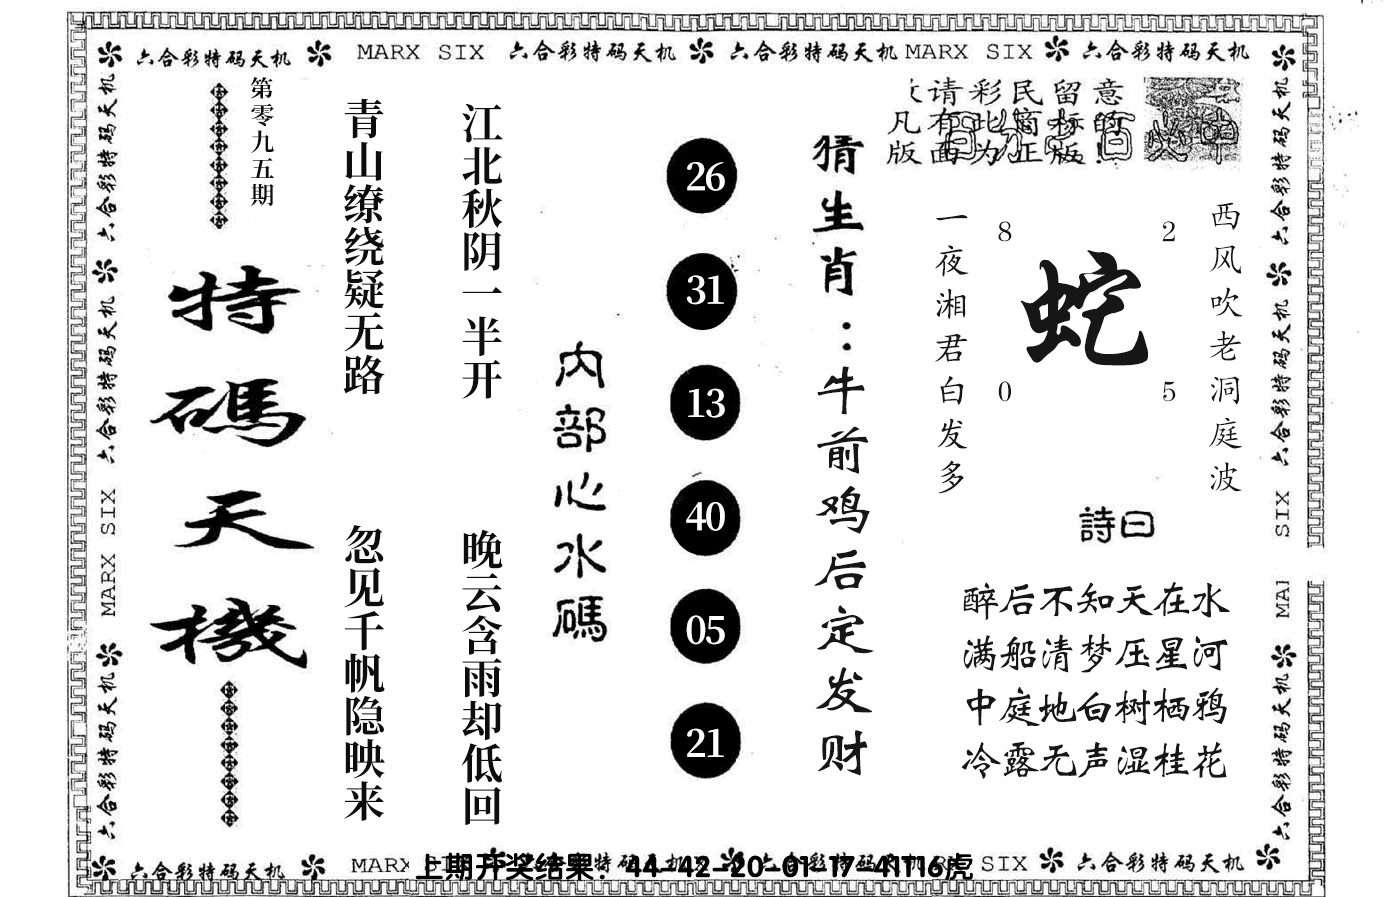 六合彩特码天机 MARX SIX 六合彩特码天机 六合彩特码天机 MARX SIX 六合彩特码天机
请彩民留意
凡有此商标的
版面为正版!
西风吹老洞庭波
一夜湘君白发多
8 2
蛇
0 5
詩曰
醉后不知天在水
满船清梦压星河
中庭地白树栖鸦
冷露无声湿桂花
猜生肖：牛前鸡后定发财
26
31
13
40
05
21
内部心水碼
江北秋阴一半开
晚云含雨却低回
青山缭绕疑无路
忽见千帆隐映来
第零九五期
特碼天機
六合彩特码天机
六合彩特码天机
MARX SIX
六合彩特码天机
六合彩特码天机
六合彩特码天机
SIX
MAR
六合彩特码天机
六合彩特码天机 MARX
SIX 六合彩特码天机
上期开奖结果：44-42-20-01-17-41T16虎